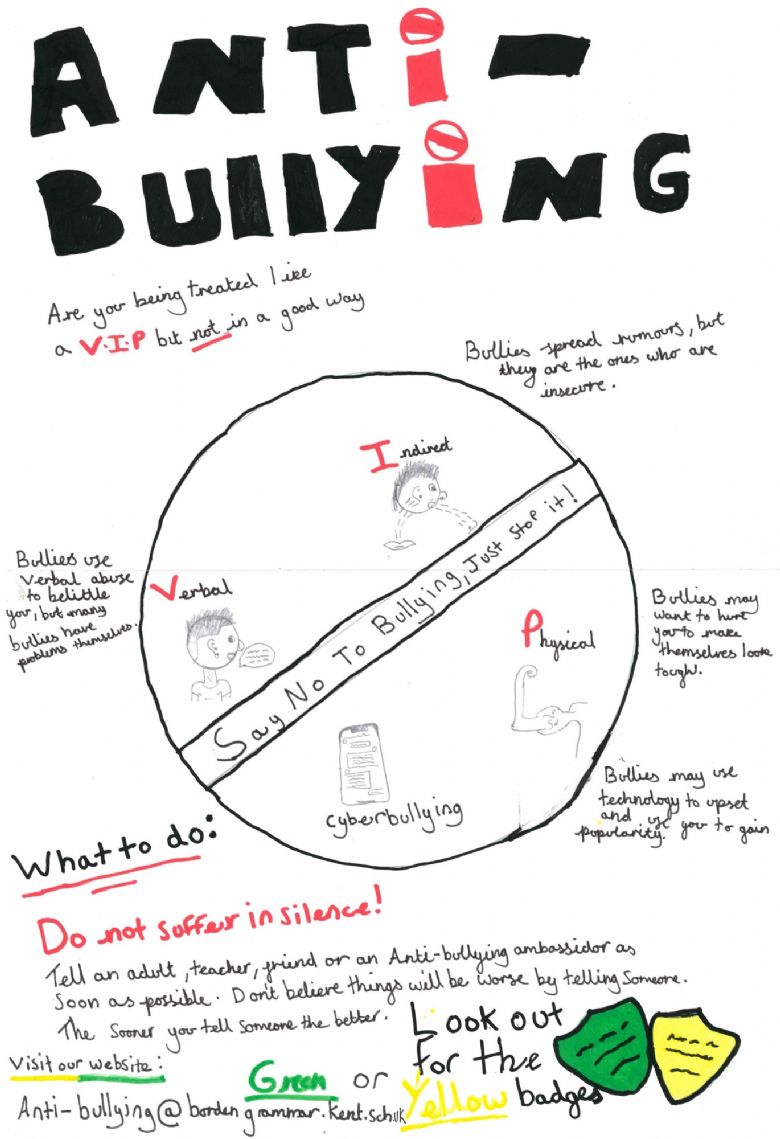 ANTi-
BULLYiNG
Are you being treated like
a V.I.P but not in a good way
Bullies spread rumours, but
they are the ones who are
insecure.
Indirect
Bullies use
verbal abuse
to belittle
you, but many
bullies have
problems themselves.
Verbal
Say No To Bullying, Just stop it!
Physical
Bullies may
want to hurt
you to make
themselves look
tough.
cyberbullying
Bullies may use
technology to upset
and use you to gain
popularity.
What to do:
Do not suffer in silence!
Tell an adult, teacher, friend or an Anti-bullying ambassidor as
soon as possible. Don't believe things will be worse by telling someone.
The sooner you tell someone the better.
Look out
for the
Green or Yellow badges
Visit our website:
Anti-bullying@bordengrammar.kent.sch.uk